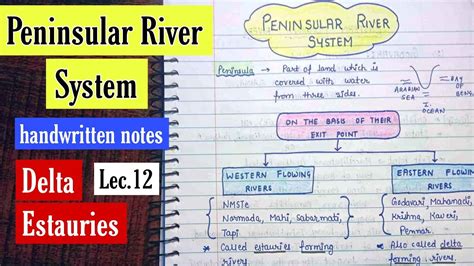 Peninsular River
System
handwritten notes
Delta
Lec.12
Estauries
PENINSULAR RIVER
SYSTEM
Peninsula → Part of land which is
covered with water
from three sides.
ARABIAN
SEA
BAY OF
I. OCEAN
ON THE BASIS OF THEIR
EXIT POINT
WESTERN FLOWING
RIVERS
EASTERN FLOWING
RIVERS
NMSTe
Normada, Mahi, Sabarmati,
Tapi
* Called estauries forming
rivers.
Godavari, Mahanadi,
Krishna, Kaveri,
Pennar.
* Also called delta
forming rivers.